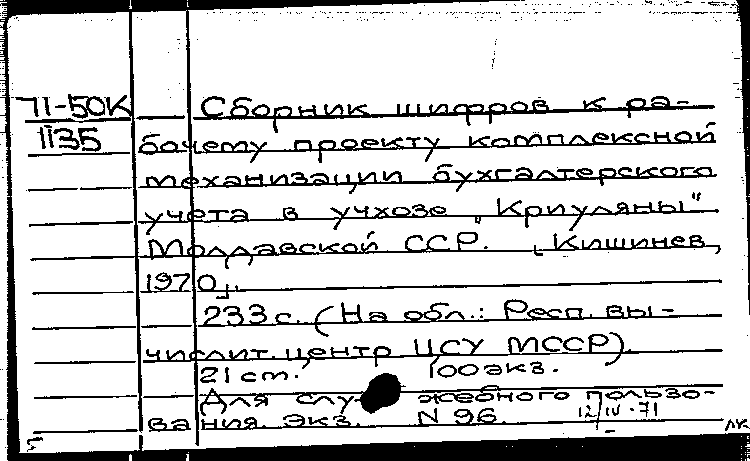 71-50К Сборник шифров к ра-
1135 бочему проекту комплексной
механизации бухгалтерского
учета в учхозе „Криуляны"
Молдавской ССР. [Кишинев,
1970].
233 с. (На обл.: Респ. вы-
числит. центр ЦСУ МССР).
21 см. 100 экз.
Для служебного пользо-
вания. Экз. N 96. 12/IV-71